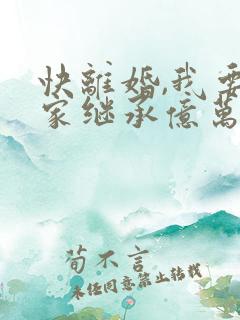 快離婚,我要
家继承億萬
荀不言
未经同意禁止转载